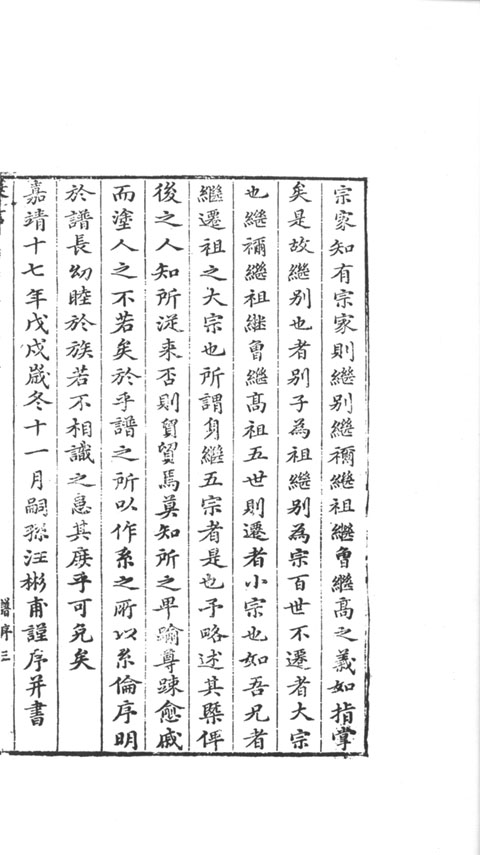 宗家知有宗家則繼別繼禰繼祖繼曾繼髙之義如指掌
矣是故繼別也者別子為祖繼別為宗百世不遷者大宗
也繼禰繼祖継曾繼髙祖五世則遷者小宗也如吾兄者
繼遷祖之大宗也所謂身繼五宗者是也予略述其槩俾
後之人知所從来否則貿貿焉莫知所之卑踰尊踈愈戚
而塗人之不若矣於乎譜之所以作系之所以系倫序明
於譜長幼睦於族若不相識之患其庶乎可免矣
嘉靖十七年戊戌嵗冬十一月嗣孫汪彬甫謹序并書
譜序三